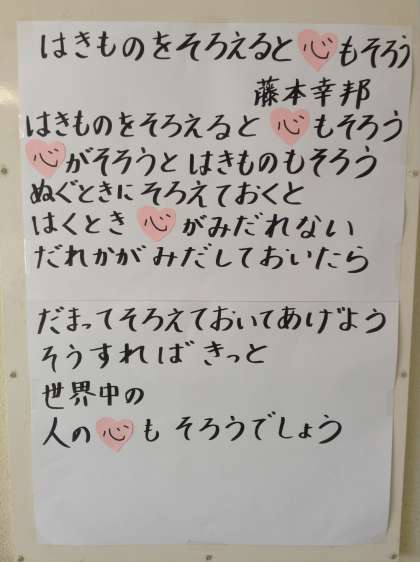 はきものをそろえると心もそろう
藤本幸邦
はきものをそろえると心もそろう
心がそろうとはきものもそろう
ぬぐときにそろえておくと
はくとき心がみだれない
だれかがみだしておいたら
だまってそろえておいてあげよう
そうすればきっと
世界中の
人の心もそろうでしょう